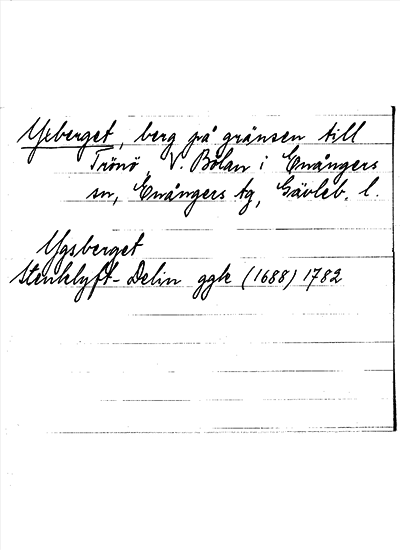 Yxberget, berg på gränsen till
Trönö V. Bölan i Enångers
sn, Enångers tg, Gävleb. l.
Ygsberget
Stenklyft-Delin ggk (1688) 1782